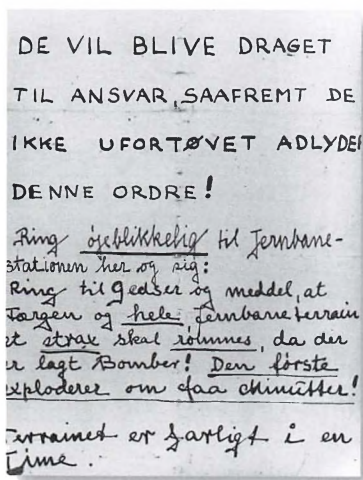 DE VIL BLIVE DRAGET
TIL ANSVAR, SAAFREMT DE
IKKE UFORTØVET ADLYDER
DENNE ORDRE!
Ring øjeblikkelig til Jernbane-
stationen her og sig:
Ring til Gedser og meddel, at
Færgen og hele Jernbaneterrain
et strax skal rømmes, da der
er lagt Bomber! Den første
exploderer om faa Minutter!
Terrainet er farligt i en
Time.